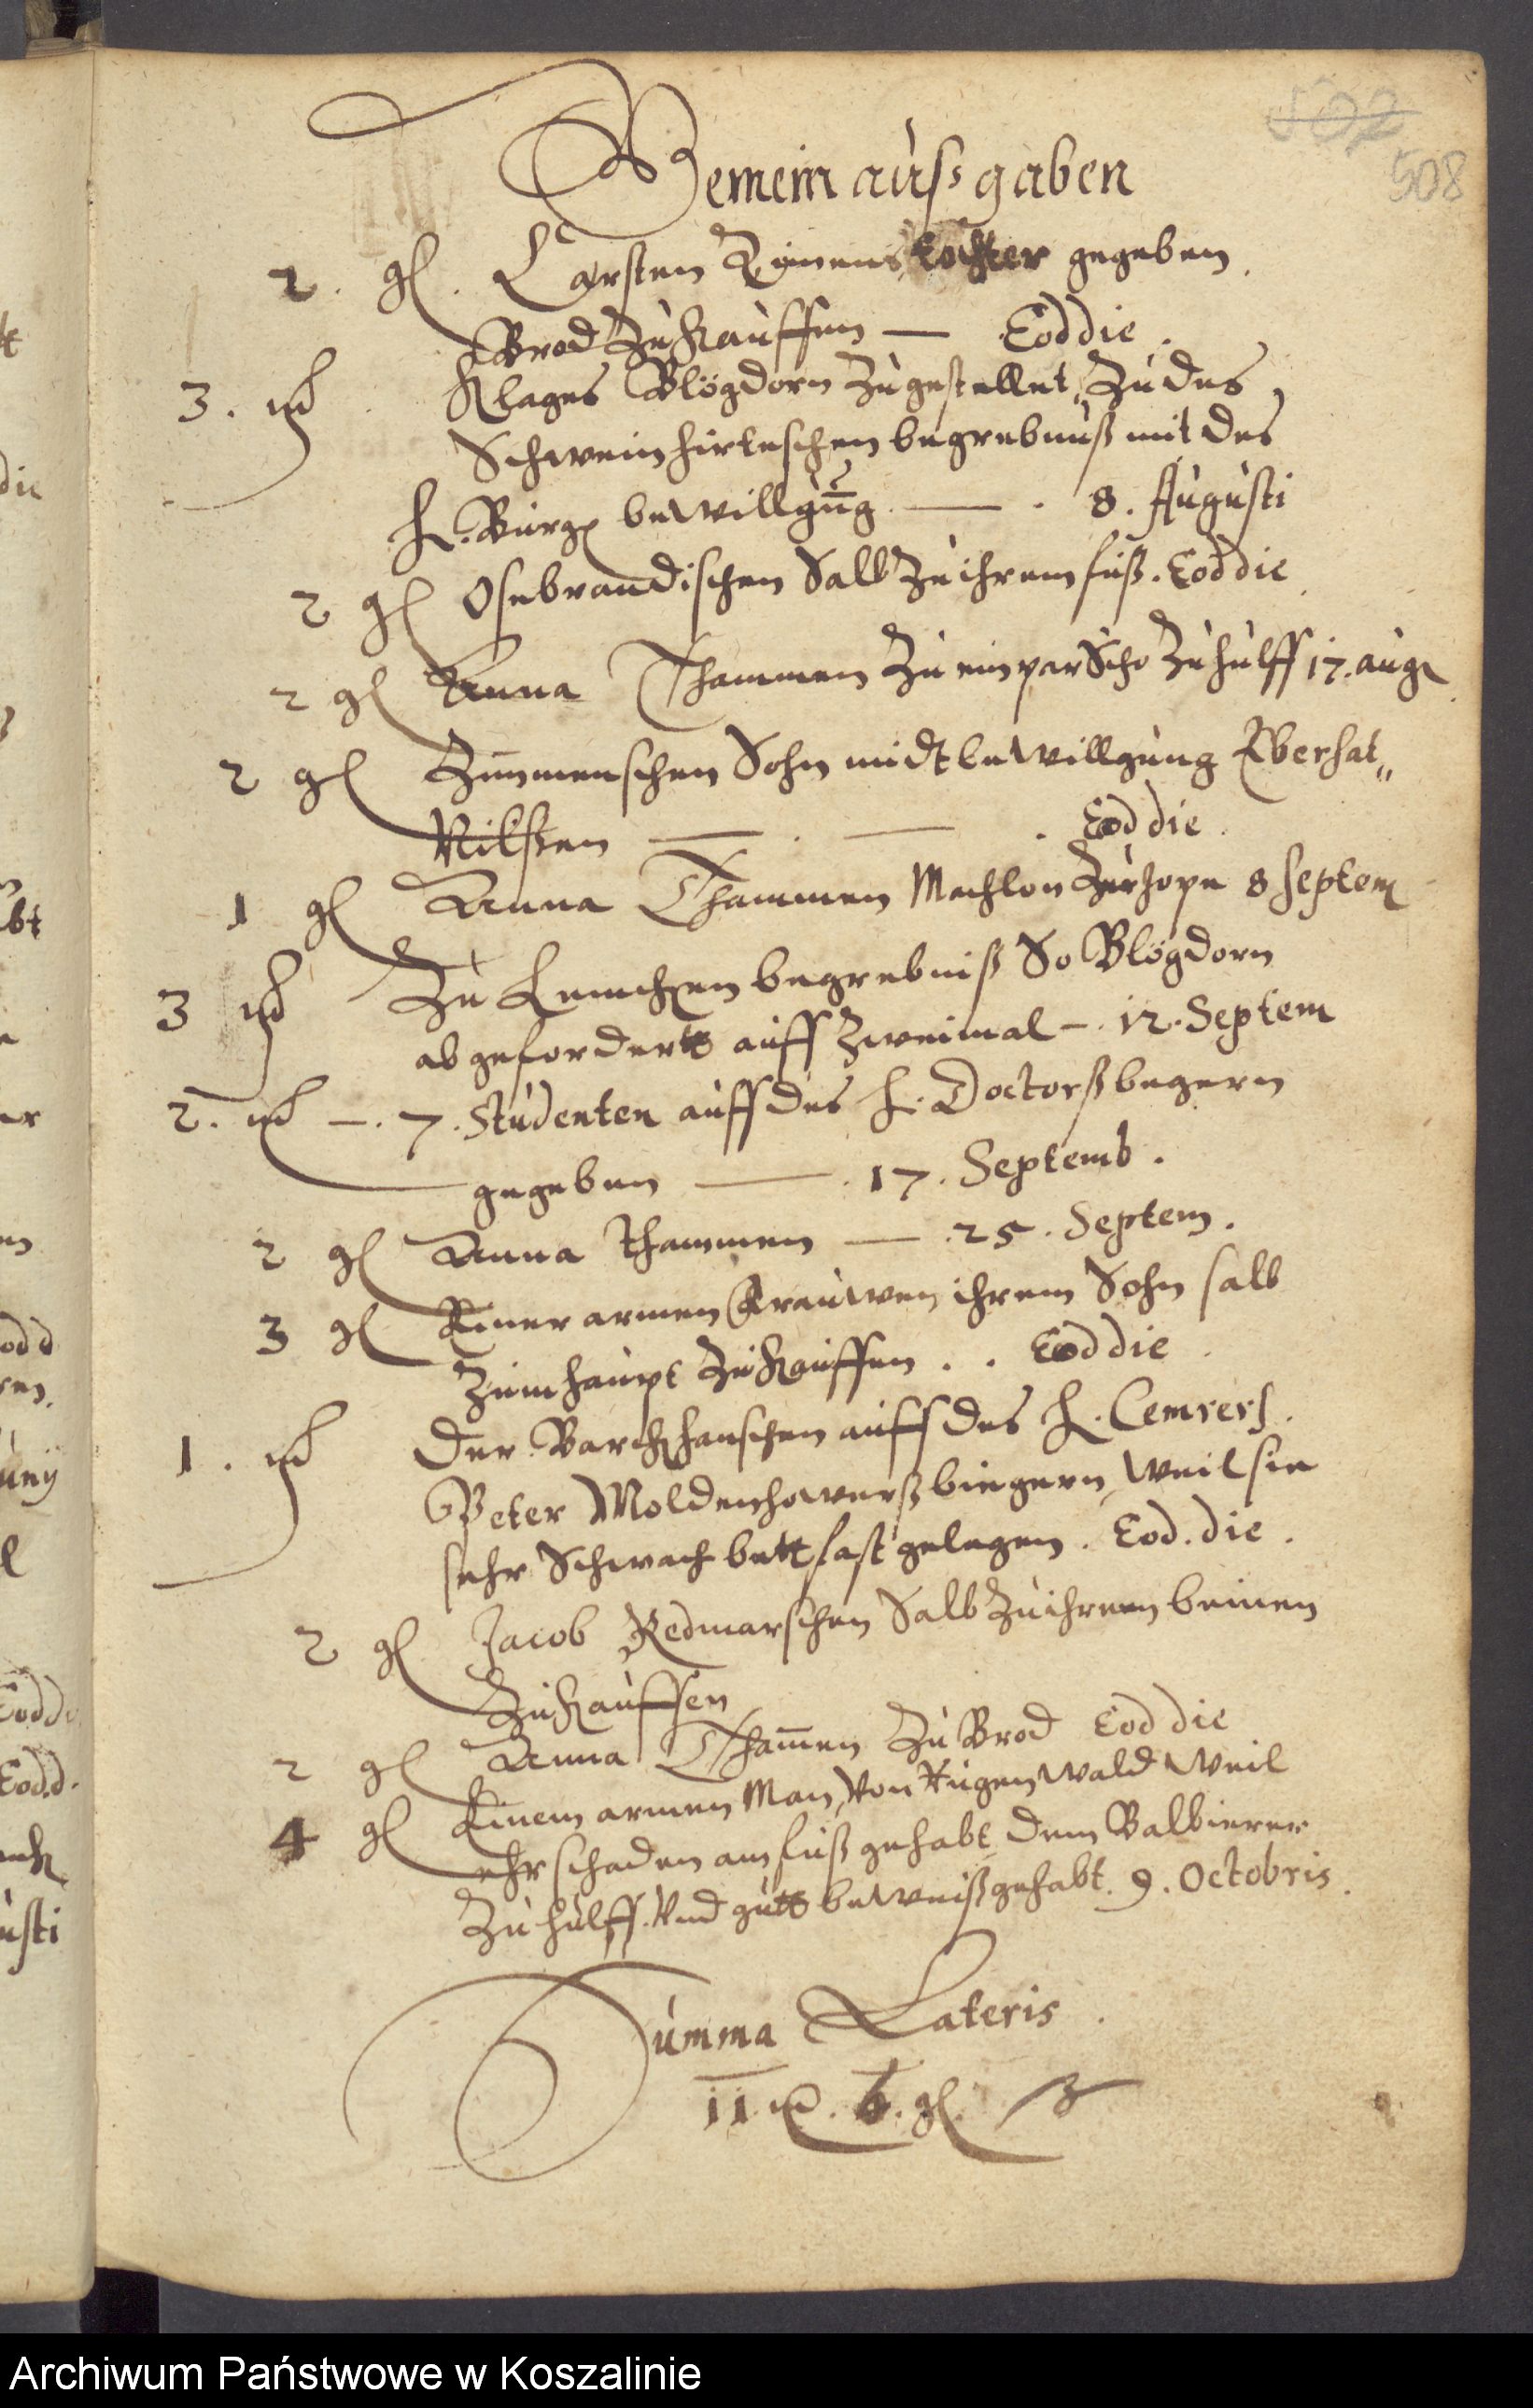 502
508
Gemein außgaben
2. gl. Carsten Zimens tochter gegeben
Brod zu kauffen — Eod die.
3. mk Klages Blögdorn zugestellet, zu des
Schweinhirteschen begrebnuß mit des
H. Burg. bewilligung — . 8. Augusti
2 gl Osebrandischen Salb zu ihrem fuß. Eod die
2 gl Anna Thammen zu ein par Scho zu hulff 17. aug
2 gl Zimmenschen Sohn midt bewillgung
Nilßen — . — . Eod die.
1 gl Anna Thammen Machlon 8 Septem
3 mk Zu begrebniß So Blögdorn
abgefordert auff zweimal —. 12. Septem
2. mk —. 7. Studenten auff des H. Doctorß begern
gegeben — . 17. Septemb.
2 gl Anna Thammen — . 25. Septem.
3 gl Einer armen Frauwen ihrem Sohn salb
zum haupt zu kauffen . . Eod die.
1. mk Der auff des H. Cemrers.
Peter Moldenhowerß biegern, weil sie
sehr Schwach bettfast gelegen. Eod. die.
2 gl Jacob Redmarschen Salb zu ihren beinen
zu kauffen
2 gl Anna Thamen zu Brod Eod die
4 gl Einem armen Man, von Rugenwald weil
ehr schaden am fuß gehabt dem Balbierer
zu hulff. Vnd gutt beweiß gehabt. 9. Octobris.
Summa Lateris.
11 mk. 6. gl.
Archiwum Państwowe w Koszalinie